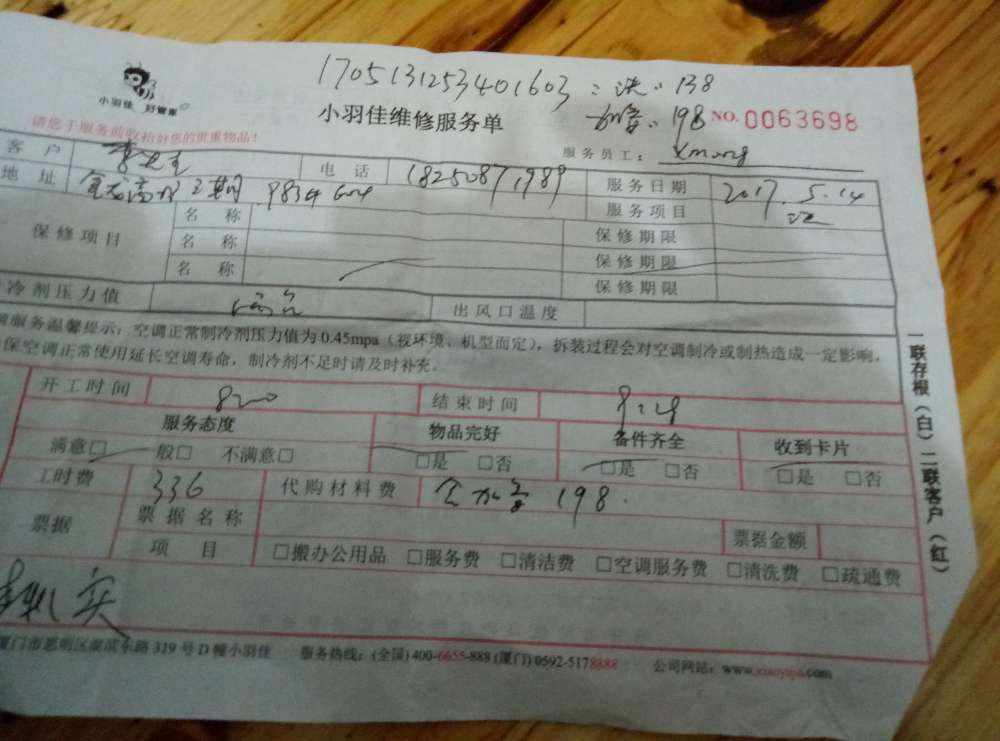 1705131253401603：洗：138
小羽佳 好管家
小羽佳维修服务单
加管：198 NO. 0063698
请您于服务前收拾好您的贵重物品！
服务员工：
客 户 李先生 电 话 18250871989 服务日期 2017.5.14
地 址 服务项目 洗
保修项目 名 称 保修期限
名 称 保修期限
名 称 保修期限
冷剂压力值 出风口温度
服务温馨提示：空调正常制冷剂压力值为0.45mpa（视环境、机型而定），拆装过程会对空调制冷或制热造成一定影响，
保空调正常使用延长空调寿命，制冷剂不足时请及时补充。
开工时间 结束时间
服务态度 物品完好 备件齐全 收到卡片
满意□ 一般□ 不满意□ □是 □否 □是 □否 □是 □否
工时费 336 代购材料费 198.
票据 票据名称 票据金额
项 目 □搬办公用品 □服务费 □清洁费 □空调服务费 □清洗费 □疏通费
厦门市思明区湖滨东路319号D幢小羽佳 服务热线：(全国) 400-6655-888 (厦门) 0592-5178888 公司网站：www.xiaoyujia.com
一联存根（白）二联客户（红）